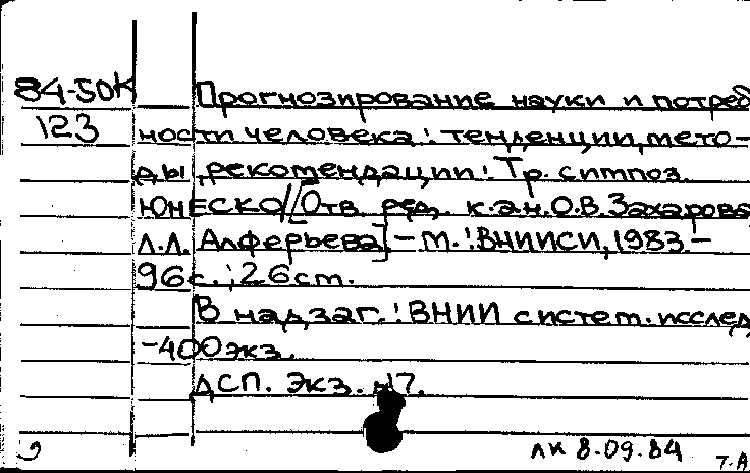 84-50К Прогнозирование науки и потреб
123 ности человека: тенденции, мето-
ды, рекомендации: Тр. симпоз.
ЮНЕСКО/[Отв. ред. к.э.н. О.В. Захарова
Л.Л. Алферьева] - М.: ВНИИСИ, 1983.-
96с.; 26 см.
В надзаг.: ВНИИ систем. исслед
-400экз.
ДСП. Экз. №17.
лк 8.09.84
т.А